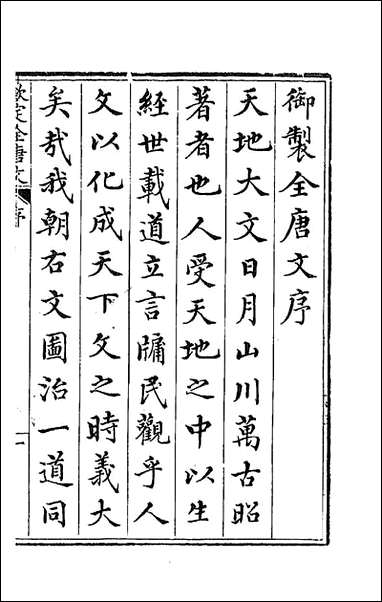 御製全唐文序
天地大文日月山川萬古昭
著者也人受天地之中以生
經世載道立言牖民觀乎人
文以化成天下文之時義大
矣哉我朝右文圖治一道同
欽定全唐文 序